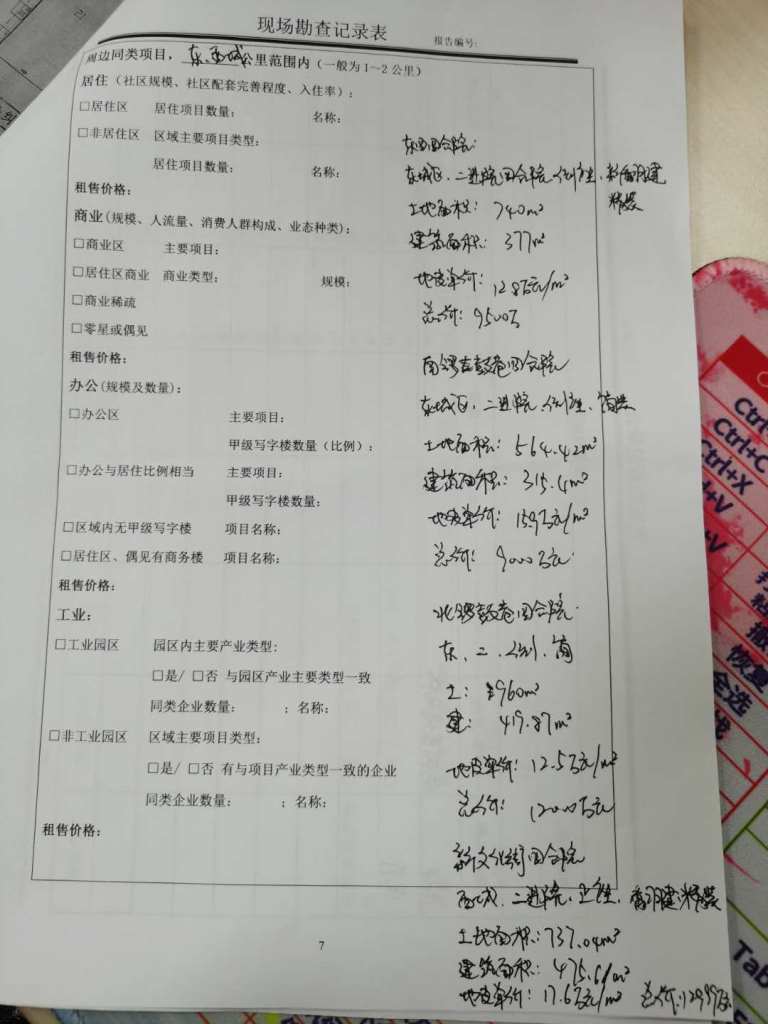 现场勘查记录表
报告编号:
周边同类项目，东、西城公里范围内（一般为1～2公里）
居住（社区规模、社区配套完善程度、入住率）:
□居住区 居住项目数量: 名称:
□非居住区 区域主要项目类型:
居住项目数量: 名称:
租售价格:
商业(规模、人流量、消费人群构成、业态种类):
□商业区 主要项目:
□居住区商业 商业类型: 规模:
□商业稀疏
□零星或偶见
租售价格:
办公(规模及数量):
□办公区 主要项目:
甲级写字楼数量（比例）:
□办公与居住比例相当 主要项目:
甲级写字楼数量:
□区域内无甲级写字楼 项目名称:
□居住区、偶见有商务楼 项目名称:
租售价格:
工业:
□工业园区 园区内主要产业类型:
□是/ □否 与园区产业主要类型一致
同类企业数量: ；名称:
□非工业园区 区域主要项目类型:
□是/ □否 有与项目产业类型一致的企业
同类企业数量: ；名称:
租售价格:
7
东四四合院:
东城区、二进院四合院、翻建
精装
土地面积: 740m²
建筑面积: 377m²
地皮单价: 12.8万元/m²
总价: 9500万
南锣鼓巷四合院
东城区、二进院、简装
土地面积: 564.42m²
建筑面积: 315.4m²
地皮单价: 15.9万元/m²
总价: 9000万元
北锣鼓巷四合院
东、二、简
土: 960m²
建: 419.87m²
地皮单价: 12.5万元/m²
总价: 12000万元
新文化街四合院
西城、二进院、翻建、精装
土地面积: 737.04m²
建筑面积: 475.61m²
地皮单价: 17.6万元/m² 总价:12999万元
Ctrl+C
Ctrl+X
恢复
全选
Tab